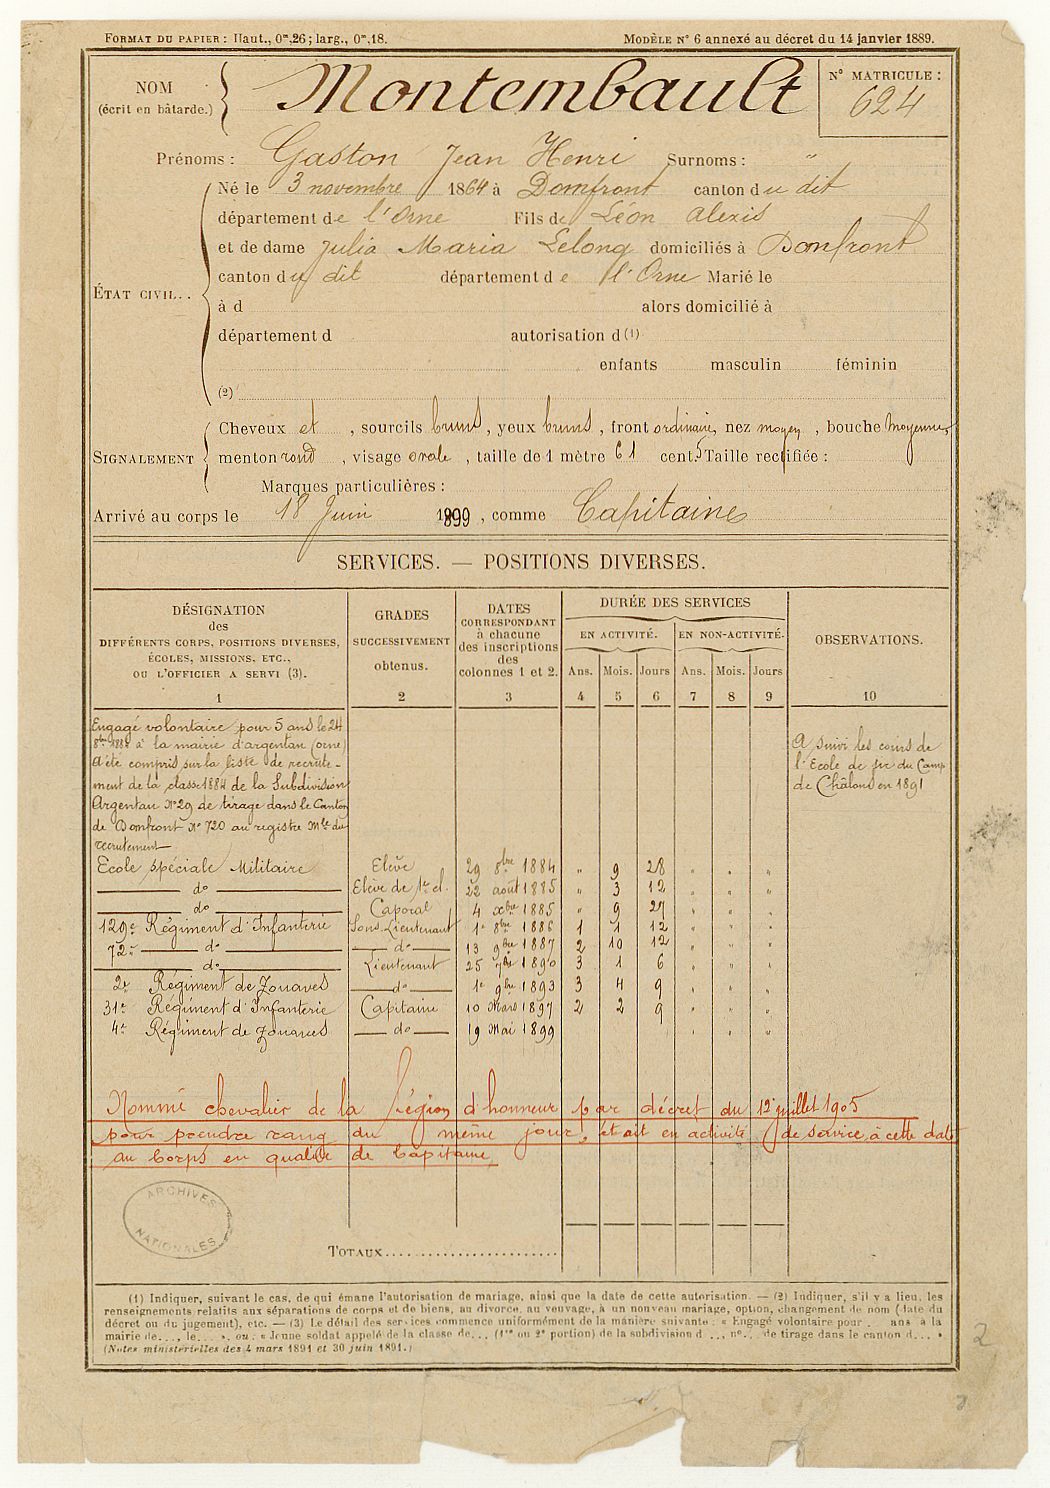 FORMAT DU PAPIER : Haut., 0m,26; larg., 0m,18. MODÈLE N° 6 annexé au décret du 14 janvier 1889.
NOM (écrit en bâtarde.) Montembault N° MATRICULE : 624
Prénoms : Gaston Jean Henri Surnoms : "
Né le 3 novembre 1864 à Domfront canton du dit
département de l'Orne Fils de Léon Alexis
et de dame Julia Maria Lelong domiciliés à Domfront
canton du dit département de l'Orne Marié le
ÉTAT CIVIL..
à d alors domicilié à
département d autorisation d (1)
enfants masculin féminin
(2)
Cheveux et , sourcils bruns , yeux bruns , front ordinaire, nez moyen , bouche moyenne,
SIGNALEMENT menton rond , visage ovale , taille de 1 mètre 61 cent.s Taille rectifiée :
Marques particulières :
Arrivé au corps le 18 Juin 1899 , comme Capitaine
SERVICES. — POSITIONS DIVERSES.
DÉSIGNATION des DIFFÉRENTS CORPS, POSITIONS DIVERSES, ÉCOLES, MISSIONS, ETC., OU L'OFFICIER A SERVI (3).
GRADES SUCCESSIVEMENT obtenus.
DATES CORRESPONDANT à chacune des inscriptions des colonnes 1 et 2.
DURÉE DES SERVICES
EN ACTIVITÉ. EN NON-ACTIVITÉ.
Ans. Mois. Jours Ans. Mois. Jours
OBSERVATIONS.
1 2 3 4 5 6 7 8 9 10
Engagé volontaire pour 5 ans le 24
8bre 1884 à la mairie d'argentan (orne)
A été compris sur la liste de recrute-
ment de la classe 1884 de la Subdivision
Argentan N° 29 de tirage dans le Canton
de Domfront N° 720 au registre Mle du
recrutement
A suivi les cours de
l'Ecole de tir du Camp
de Châlons en 1891
Ecole spéciale Militaire Elève 29 8bre 1884 " 9 28 " " "
do Elève de 1re cl. 22 août 1885 " 3 12 " " "
do Caporal 4 xbre 1885 " 9 27 " " "
129e Régiment d'Infanterie Sous-Lieutenant 1er 8bre 1886 1 1 12 " " "
72e do do 13 9bre 1887 2 10 12 " " "
do Lieutenant 25 7bre 1890 3 1 6 " " "
2e Régiment de Zouaves do 1er 9bre 1893 3 4 9 " " "
31e Régiment d'Infanterie Capitaine 10 Mars 1897 2 2 9 " " "
4e Régiment de Zouaves do 19 Mai 1899 " " "
Nommé chevalier de la Légion d'honneur par décret du 12 juillet 1905
pour prendre rang du même jour, était en activité de service à cette date
au Corps en qualité de Capitaine,
ARCHIVES NATIONALES
TOTAUX
(1) Indiquer, suivant le cas, de qui émane l'autorisation de mariage, ainsi que la date de cette autorisation. — (2) Indiquer, s'il y a lieu, les
renseignements relatifs aux séparations de corps et de biens, au divorce, au veuvage, à un nouveau mariage, option, changement de nom (date du
décret ou du jugement), etc. — (3) Le détail des services commence uniformément de la manière suivante : « Engagé volontaire pour . ans à la
mairie de..., le... », ou : « Jeune soldat appelé de la classe de... (1re ou 2e portion) de la subdivision d ..., n°... de tirage dans le canton d... »
(Notes ministérielles des 4 mars 1891 et 30 juin 1891.)
2